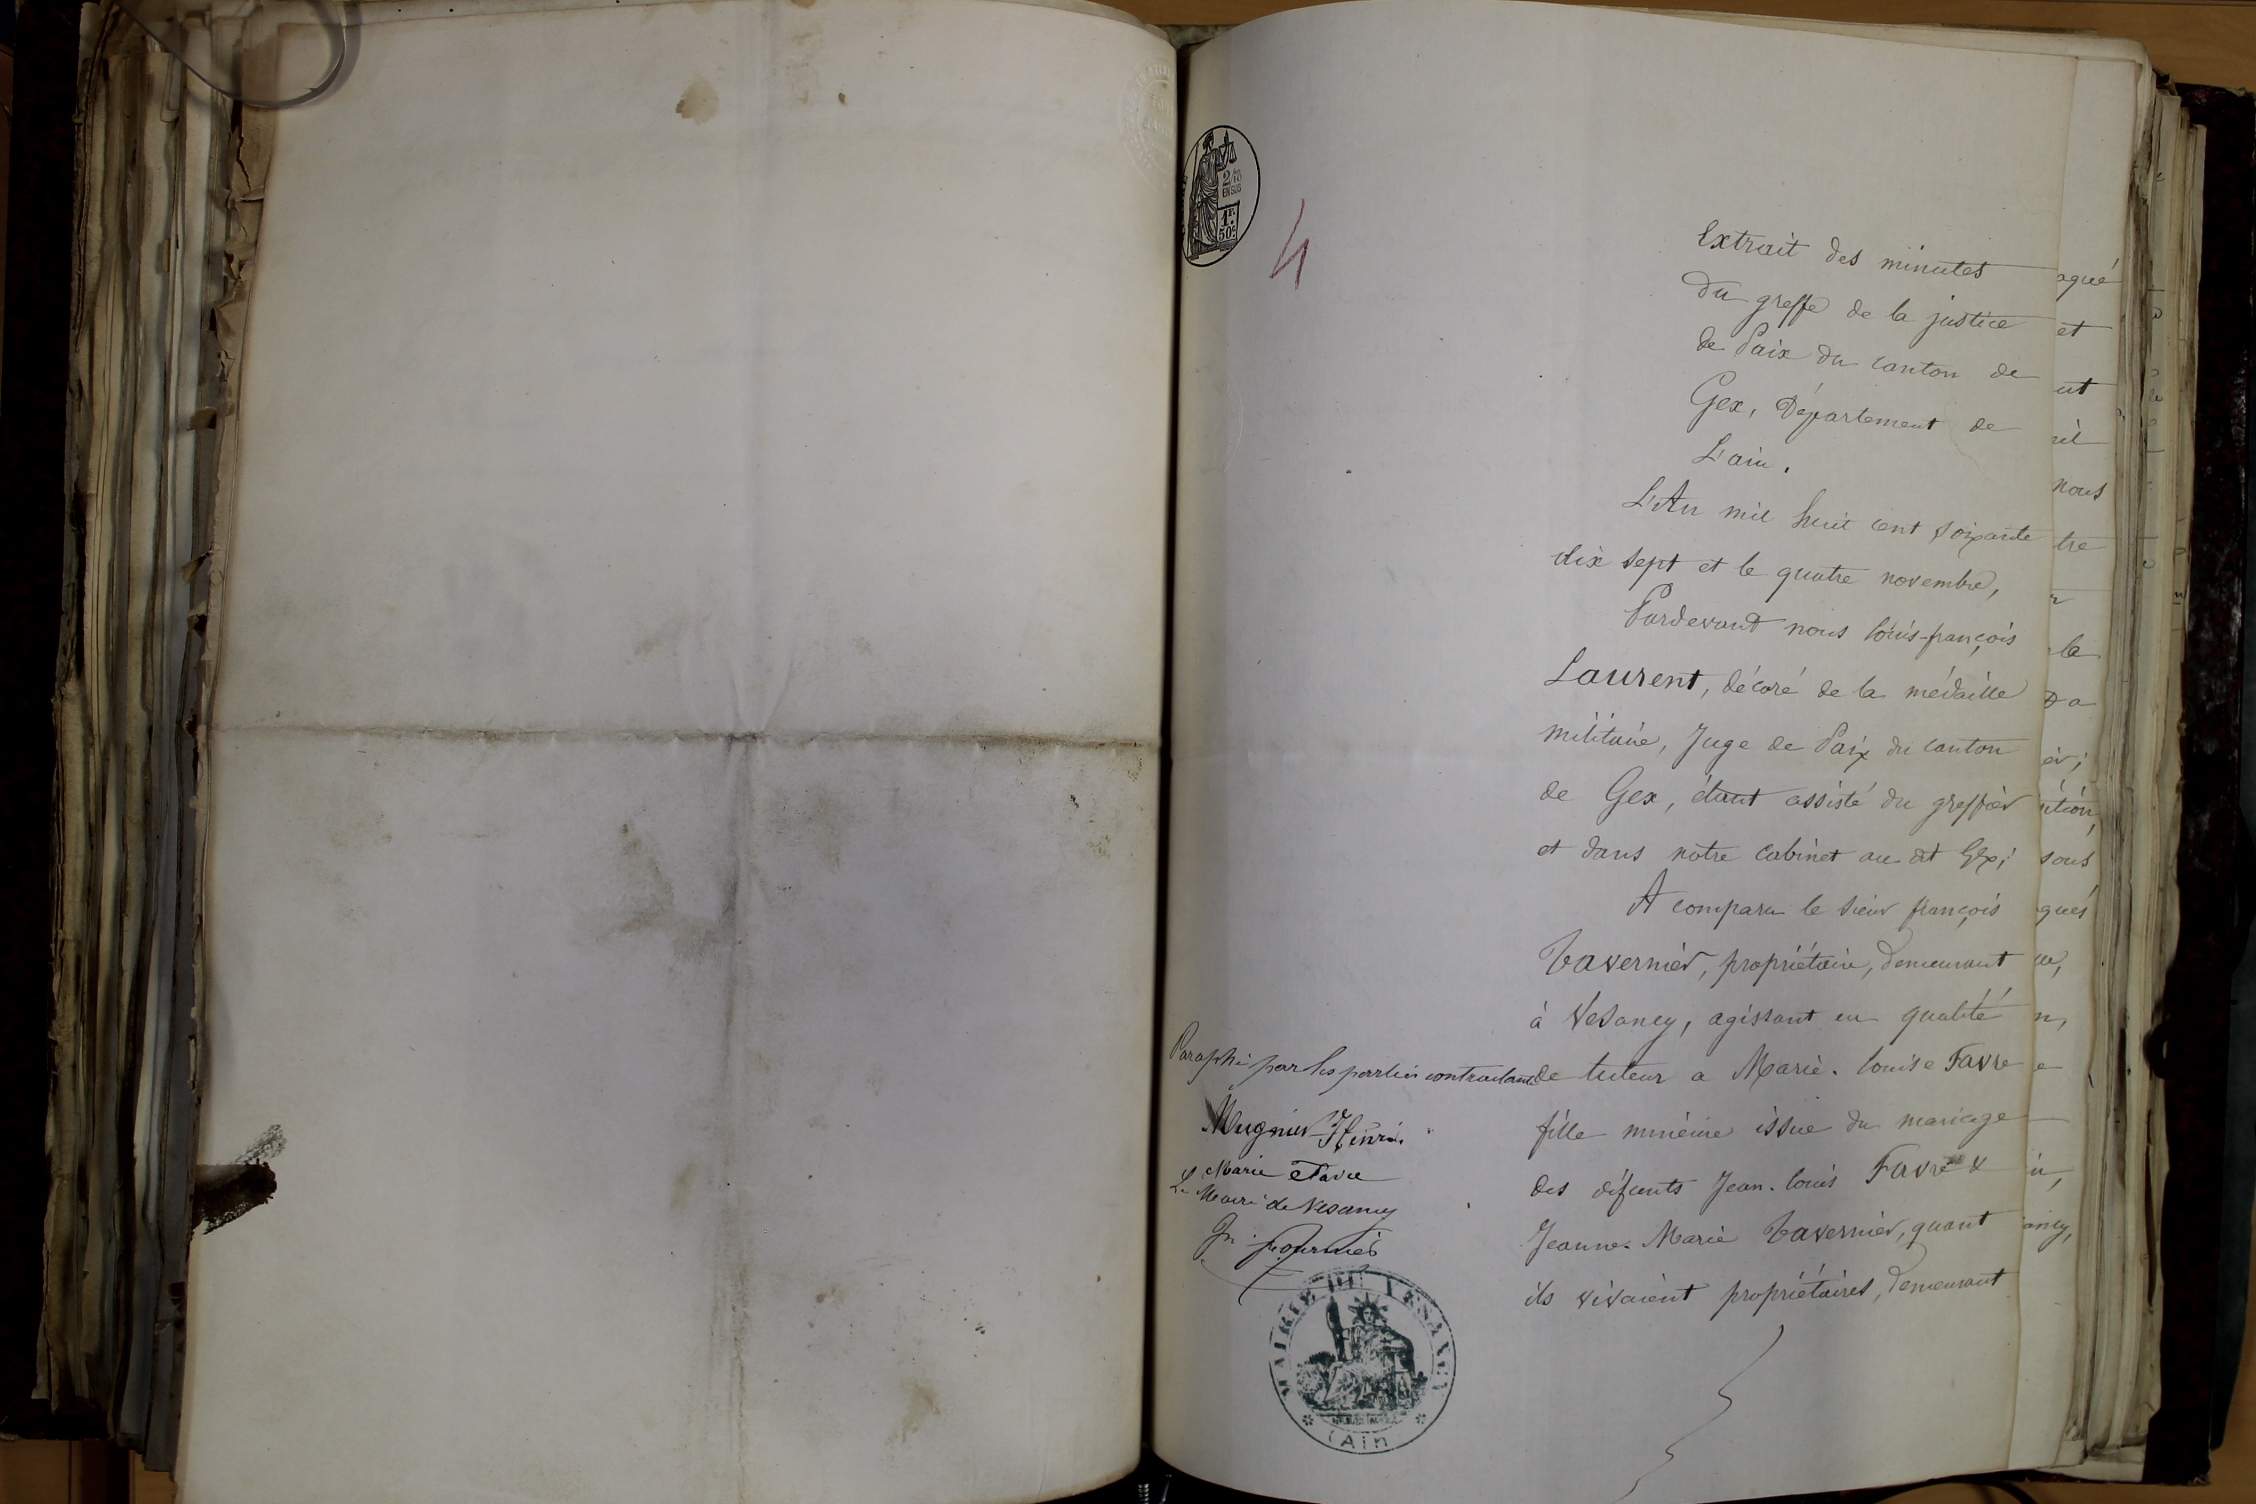 2/10
EN SUS
1F.
50C.
4
Extrait des minutes
du greffe de la justice
de Paix du canton de
Gex, Département de
L'ain.
L'An mil huit cent soixante
dix sept et le quatre novembre,
Pardevant nous louis-françois
Laurent, décoré de la médaille
militaire, Juge de Paix du canton
de Gex, étant assisté du greffier
et dans notre cabinet au dit Gex;
A comparu le sieur françois
Tavernier, propriétaire, demeurant
à Vesancy, agissant en qualité
de tuteur a Marie-louise Favre
fille mineure issue du mariage
des défunts Jean-louis Favre &
Jeanne-Marie Tavernier, quant
ils vivaient propriétaires, demeurant
Paraphé par les parties contractantes
Mugnier Henri
Marie Favre
Le Maire de Vesancy
Fournier
MAIRIE DE VESANCY
(AIN)
aqué
et
ut
nil
nous
tre
r
la
Da
er;
ution,
sous
qués
ue,
n,
e
in,
ancy,